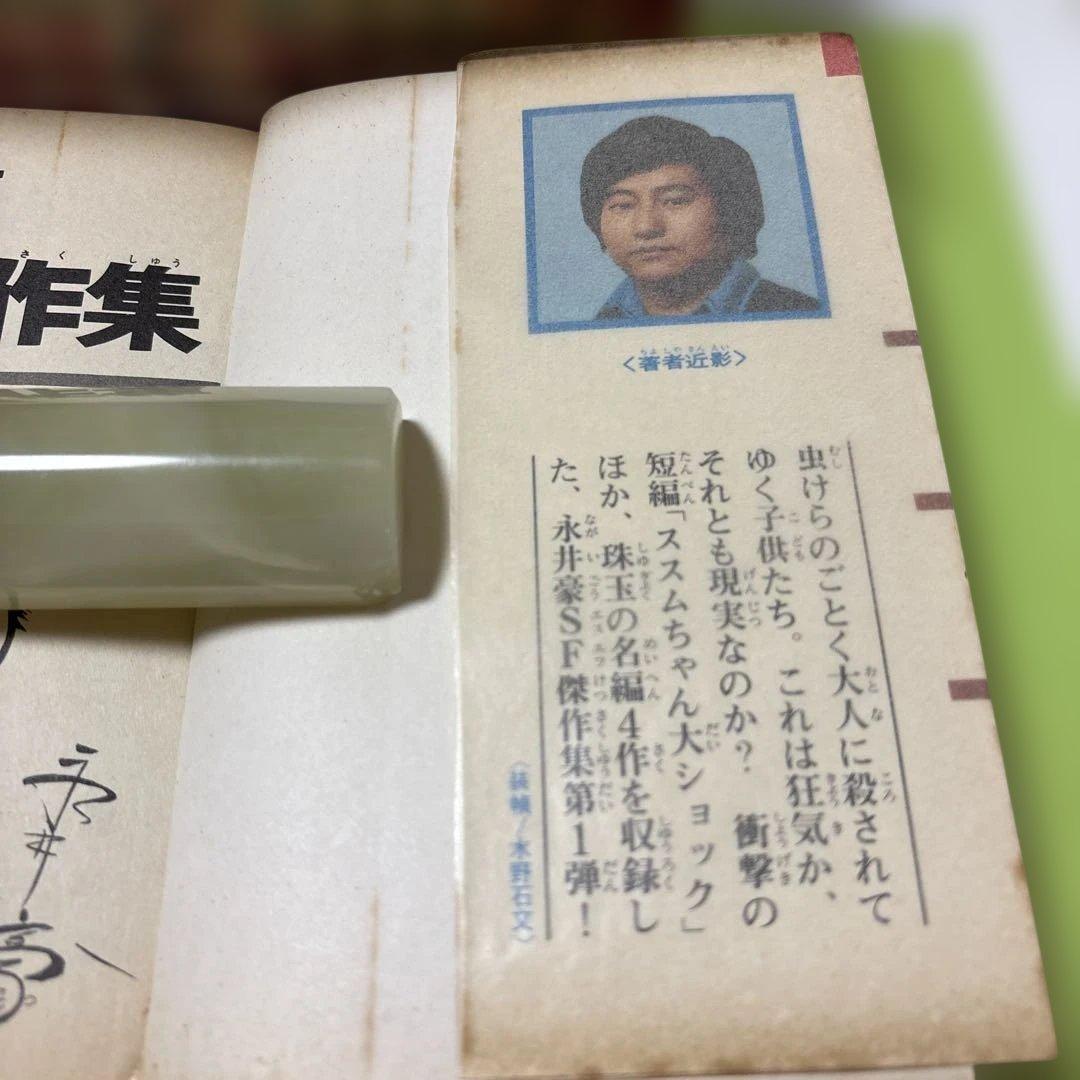 作集
さくしゅう
〈著者近影〉
ちょしゃきんえい
虫けらのごとく大人に殺されて
ゆく子供たち。これは狂気か、
それとも現実なのか？ 衝撃の
短編「ススムちゃん大ショック」
ほか、珠玉の名編4作を収録し
た、永井豪SF傑作集第1弾！
〈装幀/水野石文〉